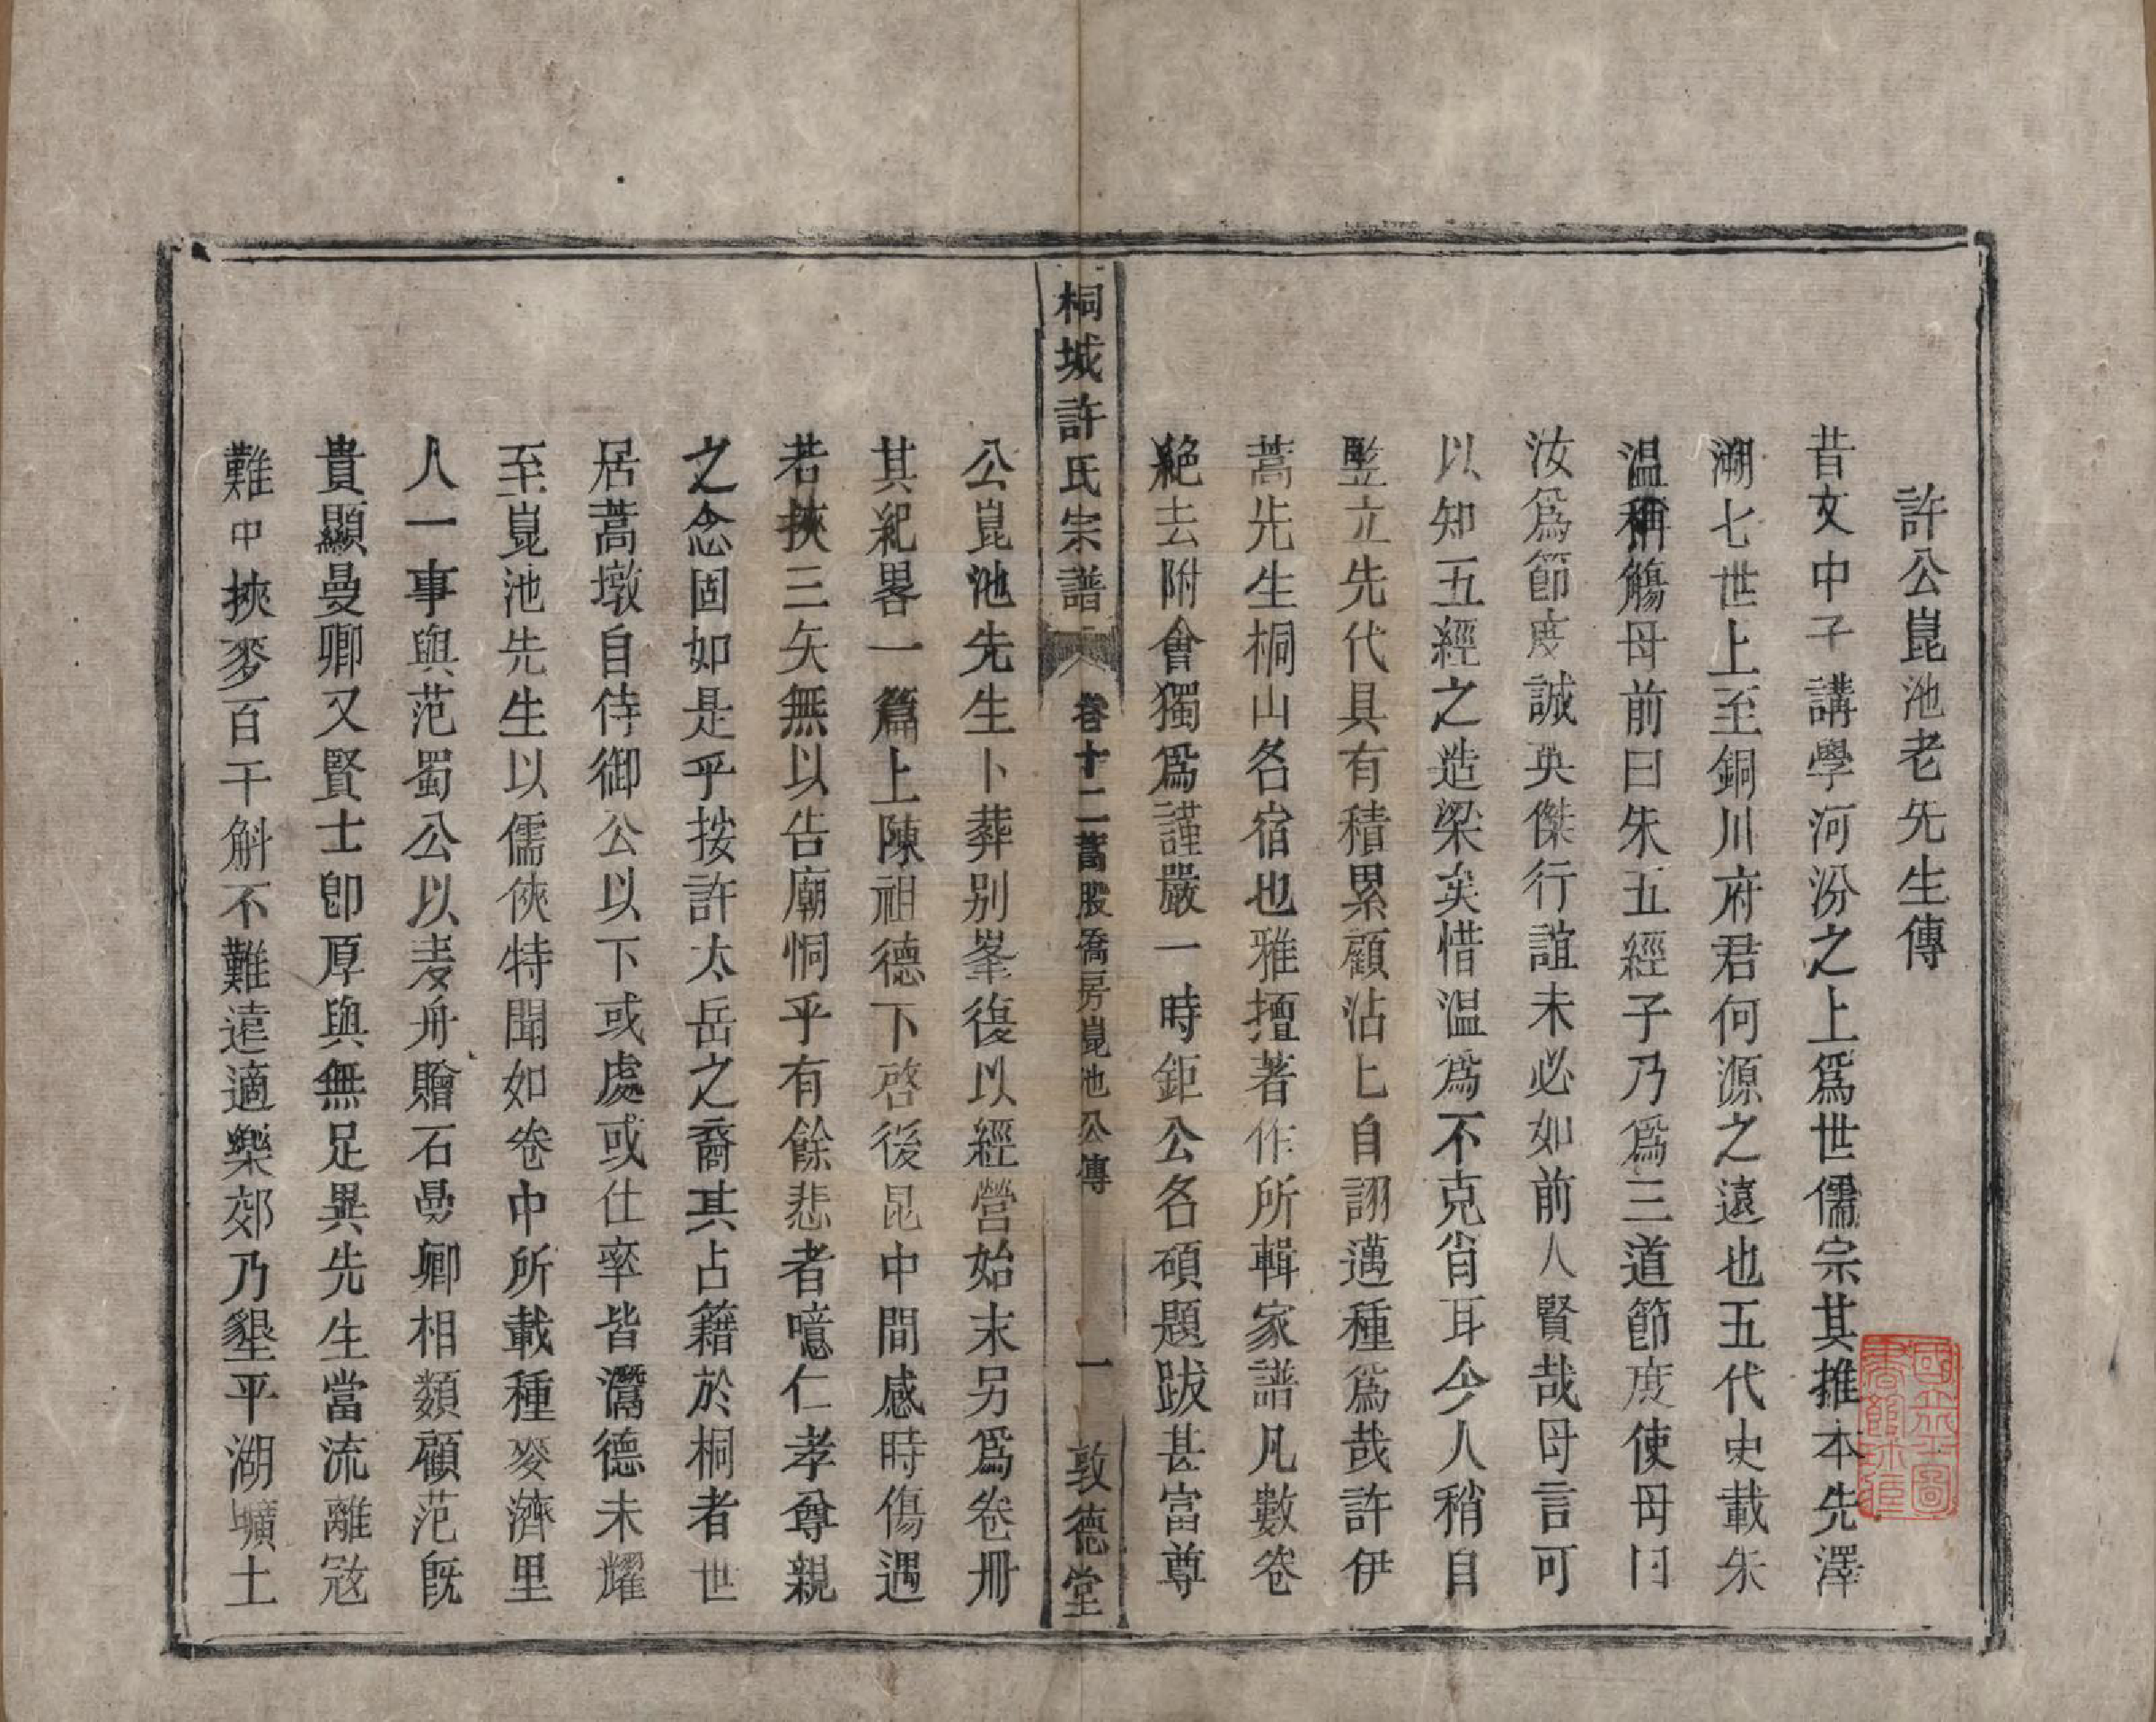 許公崑池老先生傳
昔文中子講學河汾之上爲世儒宗其推本先澤
溯七世上至銅川府君何源之遠也五代史載朱
温稱觴母前曰朱五經子乃爲三道節度使母曰
汝爲節度誠英傑行誼未必如前人賢哉母言可
以知五經之造梁矣惜温爲不克肖耳今人稍自
豎立先代具有積累顧沾匕自詡邁種爲哉許伊
蒿先生桐山名宿也雅擅著作所輯家譜凡數卷
絕去附會獨爲謹嚴一時鉅公名碩題跋甚富尊
桐城許氏宗譜 卷十二蒿股喬房崑池公傳 一 敦德堂
公崑池先生卜葬别峯復以經營始末另爲卷冊
其紀畧一篇上陳祖德下啓後昆中間感時傷遇
若挾三矢無以告廟恫乎有餘悲者噫仁孝尊親
之念固如是乎按許太岳之裔其占籍於桐者世
居蒿墩自侍御公以下或處或仕率皆潛德未耀
至崑池先生以儒俠特聞如卷中所載種麥濟里
人一事與范蜀公以麦舟贈石曼卿相類顧范旣
貴顯曼卿又賢士卽厚與無足異先生當流離寇
難中挾麥百千斛不難遠適樂郊乃墾平湖壙土
國立北平圖書館珍藏